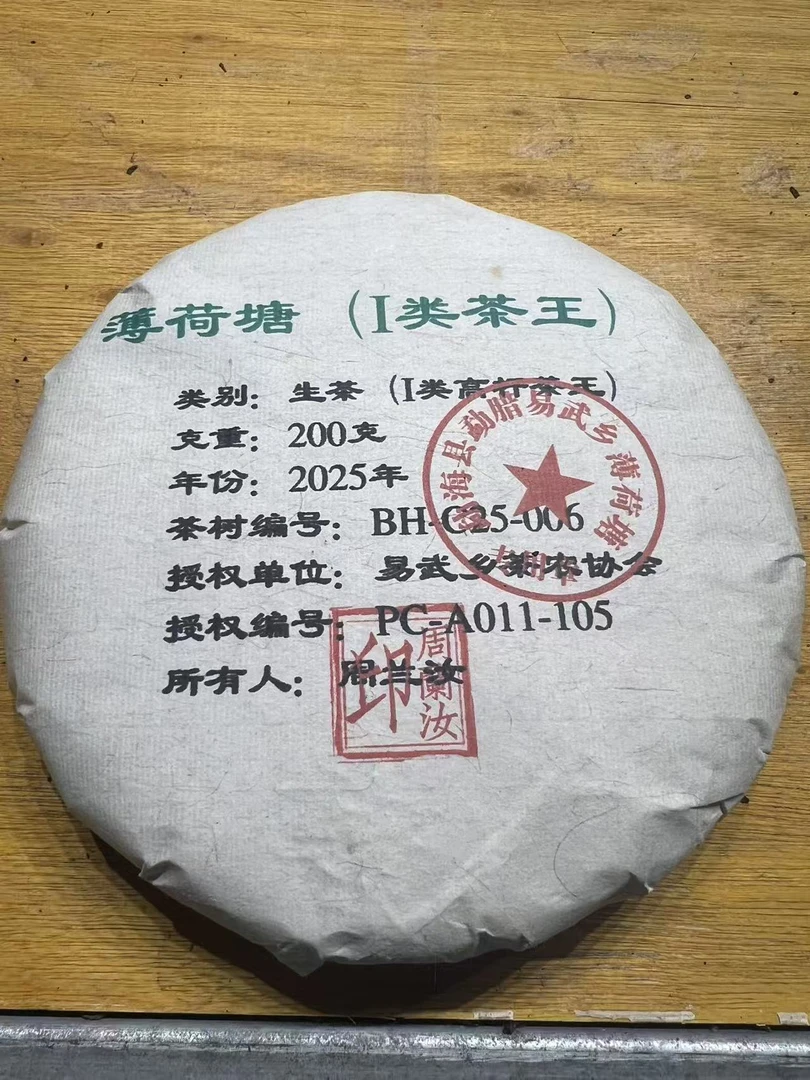 薄荷塘（I类茶王）
类别：生茶（I类高杆茶王）
克重：200克
年份：2025年
茶树编号：BH-C25-006
授权单位：易武乡茶农协会
授权编号：PC-A011-105
所有人：周兰汝
海县勐腊易武乡薄荷塘
周蘭汝
印